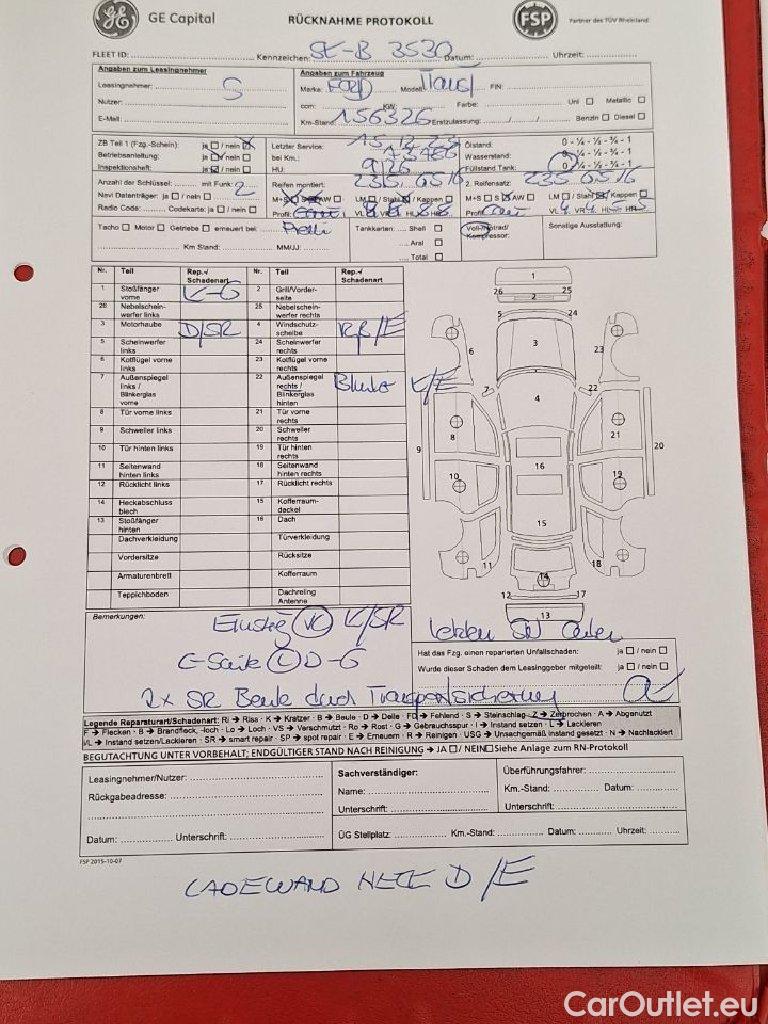 GE Capital
RÜCKNAHME PROTOKOLL
FSP
Partner des TÜV Rheinland
FLEET ID: Kennzeichen: SE-B 3530 Datum: Uhrzeit:
Angaben zum Leasingnehmer
Leasingnehmer: S
Nutzer:
E-Mail:
Angaben zum Fahrzeug
Marke: FORD Modell: FIN:
ccm: KW: Farbe: Uni Metallic
Km-Stand: 156326 Erstzulassung: Benzin Diesel
ZB Teil 1 (Fzg.-Schein): ja / nein
Betriebsanleitung: ja / nein
Inspektionsheft: ja / nein
Letzter Service:
bei Km.:
HU: 9/26
Ölstand: 0 - ¼ - ½ - ¾ - 1
Wasserstand: 0 - ¼ - ½ - ¾ - 1
Füllstand Tank: 0 - ¼ - ½ - ¾ - 1
Anzahl der Schlüssel: mit Funk: 2
Navi Datenträger: ja / nein
Radio Code: Codekarte: ja / nein
Reifen montiert: 235/65/16
M+S SO AW LM / Stahl / Kappen
Profil: VL 8 VR 8 HL 8 HR 8
2. Reifensatz: 235 65/16
M+S SO AW LM / Stahl / Kappen
Profil: VL 4 VR 4 HL 5 HR 5
Tacho Motor Getriebe erneuert bei:
Km Stand: MM/JJ:
Tankkarten: Shell
Aral
Total
Vollrad/Notrad/
Kompressor:
Sonstige Ausstattung:
Nr. Teil Rep.-/ Schadenart Nr. Teil Rep.-/ Schadenart
1 Stoßfänger vorne K-G 2 Grill/Vorder- seite
26 Nebelschein- werfer links 25 Nebelschein- werfer rechts
3 Motorhaube D/SR 4 Windschutz- scheibe
5 Scheinwerfer links 24 Scheinwerfer rechts
6 Kotflügel vorne links 23 Kotflügel vorne rechts
7 Außenspiegel links / Blinkerglas vorne 22 Außenspiegel rechts / Blinkerglas hinten K/E
8 Tür vorne links 21 Tür vorne rechts
9 Schweller links 20 Schweller rechts
10 Tür hinten links 19 Tür hinten rechts
11 Seitenwand hinten links 18 Seitenwand hinten rechts
12 Rücklicht links 17 Rücklicht rechts
14 Heckabschluss blech 15 Kofferraum- deckel
13 Stoßfänger hinten 16 Dach
Dachverkleidung Türverkleidung
Vordersitze Rücksitze
Armaturenbrett Kofferraum
Teppichboden Dachreling Antenne
1
26 25
2
5 24
3
6 23
7 22
4
8 21
9 20
16
10 19
15
11 18
14
12 17
13
Bemerkungen: Einstieg VL K/SR
C-Säule L D-G
2x SR Beule durch Transportsicherung
Hat das Fzg. einen reparierten Unfallschaden: ja / nein
Wurde dieser Schaden dem Leasinggeber mitgeteilt: ja / nein
Legende Reparaturart/Schadenart: Ri → Riss · K → Kratzer · B → Beule · D → Delle · FD → Fehlend · S → Steinschlag · Z → Zerbrochen · A → Abgenutzt
F → Flecken · B → Brandfleck, -loch · Lo → Loch · VS → Verschmutzt · Ro → Rost · G → Gebrauchsspur · I → Instand setzen · L → Lackieren
I/L → Instand setzen/Lackieren · SR → smart repair · SP → spot repair · E → Erneuern · R → Reinigen · USG → Unsachgemäß instand gesetzt · N → Nachlackiert
BEGUTACHTUNG UNTER VORBEHALT; ENDGÜLTIGER STAND NACH REINIGUNG → JA / NEIN Siehe Anlage zum RN-Protokoll
Leasingnehmer/Nutzer:
Rückgabeadresse:
Datum: Unterschrift:
Sachverständiger:
Name:
Unterschrift:
Überführungsfahrer:
Km.-Stand: Datum:
Unterschrift:
ÜG Stellplatz: Km.-Stand: Datum: Uhrzeit:
FSP 2015-10-07
LADEWAND HECK D/E
CarOutlet.eu